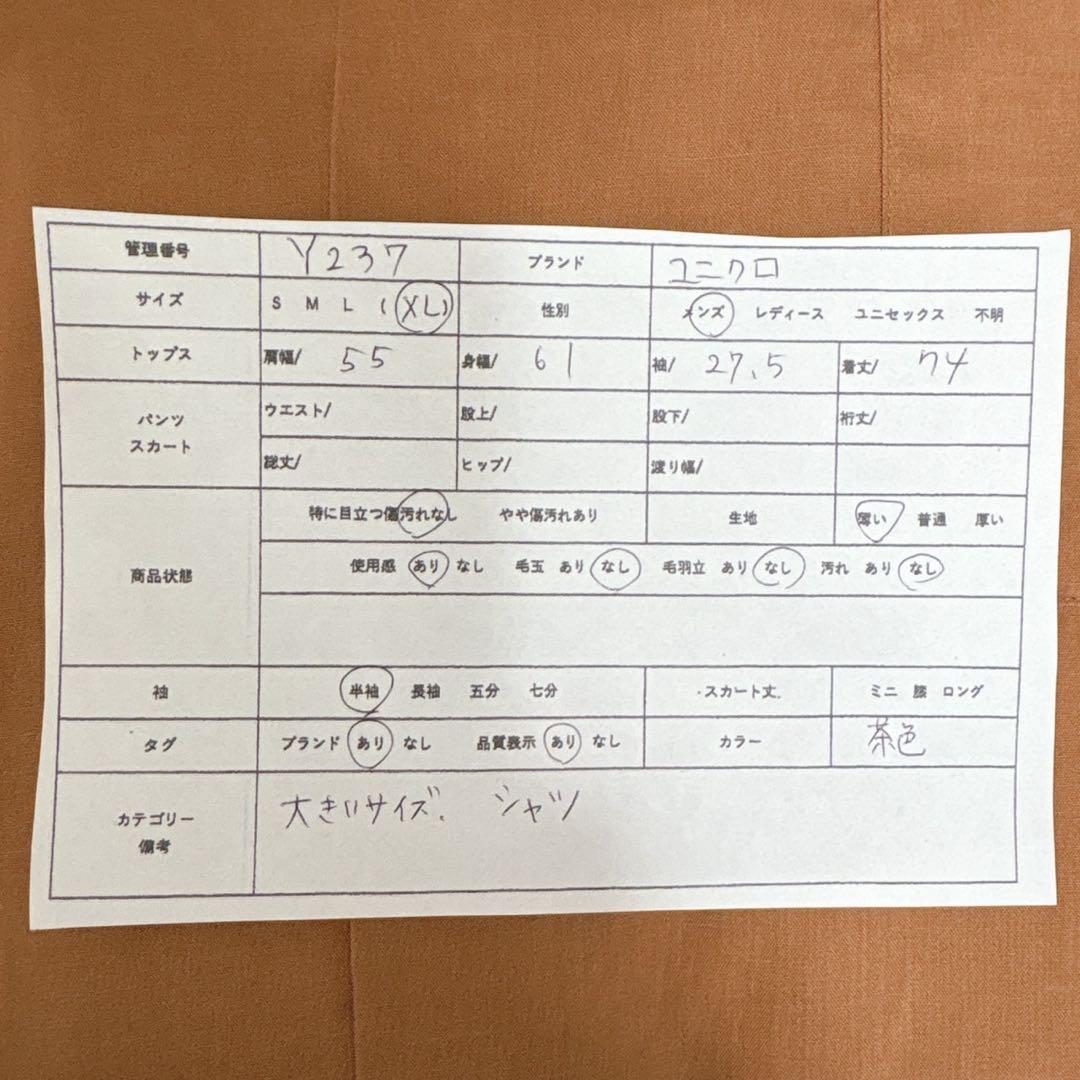 管理番号 Y237 ブランド ユニクロ
サイズ S M L (XL) 性別 メンズ レディース ユニセックス 不明
トップス 肩幅/ 55 身幅/ 61 袖/ 27.5 着丈/ 74
パンツ スカート ウエスト/ 股上/ 股下/ 裄丈/
総丈/ ヒップ/ 渡り幅/
特に目立つ傷汚れなし やや傷汚れあり 生地 薄い 普通 厚い
商品状態 使用感 あり なし 毛玉 あり なし 毛羽立 あり なし 汚れ あり なし
袖 半袖 長袖 五分 七分 スカート丈 ミニ 膝 ロング
タグ ブランド あり なし 品質表示 あり なし カラー 茶色
カテゴリー 備考 大きいサイズ. シャツ